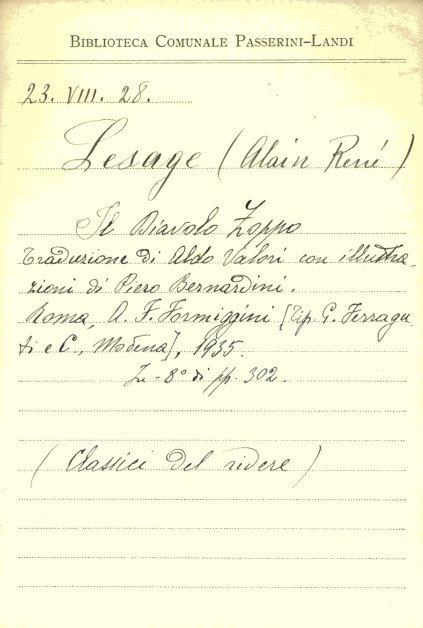 BIBLIOTECA COMUNALE PASSERINI-LANDI
23. VIII. 28.
Lesage (Alain René)
Il Diavolo Zoppo
Traduzione di Aldo Valori con illustra-
zioni di Piero Bernardini.
Roma, A. F. Formiggini [Tip. G. Ferragu-
ti e C., Modena], 1935.
In-8° di pp. 302.
(Classici del ridere)